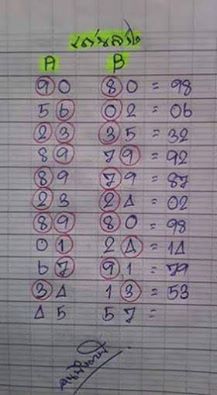 A B
90 80 = 98
56 02 = 06
23 35 = 32
89 79 = 92
89 79 = 87
23 24 = 02
89 80 = 98
01 24 = 14
67 9,1 = 79
34 13 = 53
45 57 =